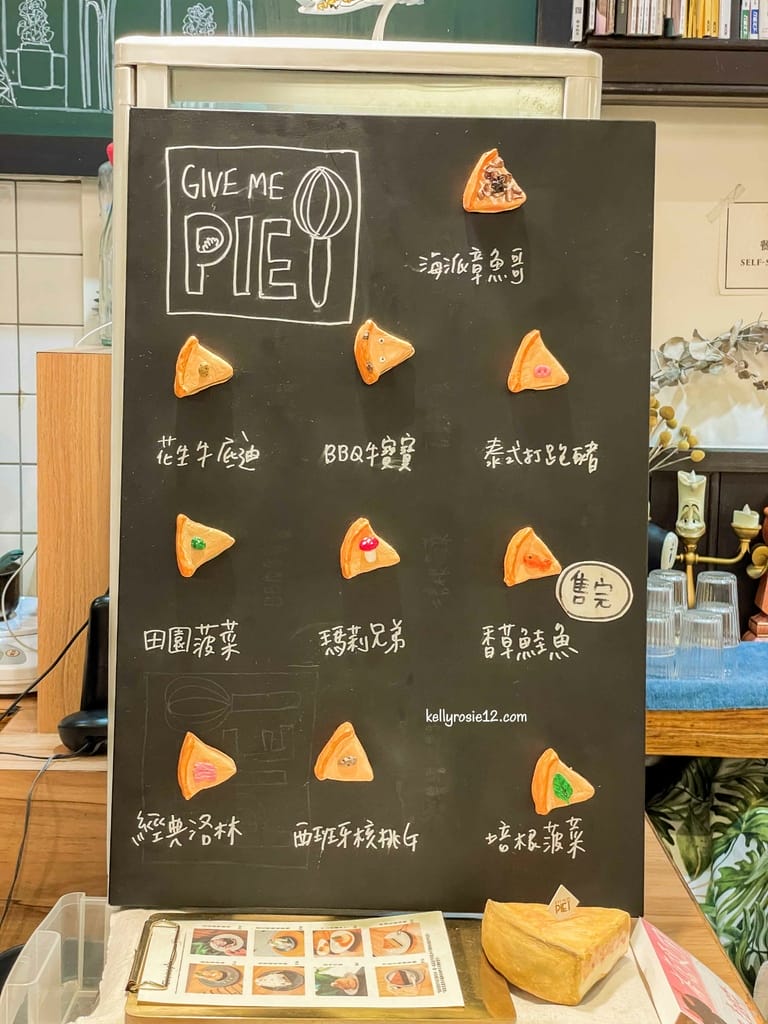 GIVE ME
PIE
海派章魚哥
花生牛底迪
BBQ牛寶寶
泰式打跑豬
田園菠菜
瑪莉兄弟
香草鮭魚
售完
kellyrosie12.com
經典洛林
西班牙核桃
培根菠菜
SELF-S
PIE!